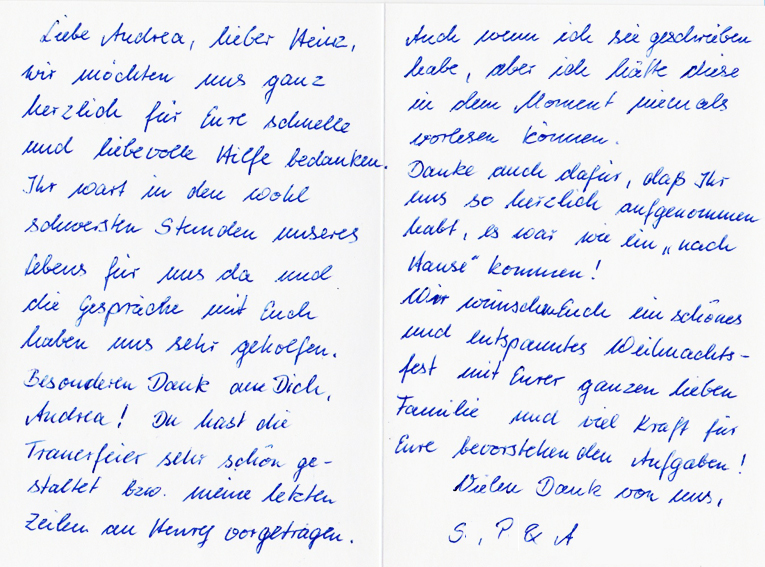 Liebe Andrea, lieber Heinz,
wir möchten uns ganz
herzlich für Eure schnelle
und liebevolle Hilfe bedanken.
Ihr wart in den wohl
schwersten Stunden unseres
Lebens für uns da und
die Gespräche mit Euch
haben uns sehr geholfen.
Besonderen Dank an Dich,
Andrea! Du hast die
Trauerfeier sehr schön ge-
staltet bzw. meine letzten
Zeilen an Henry vorgetragen.
Auch wenn ich sie geschrieben
habe, aber ich hätte diese
in dem Moment niemals
vorlesen können.
Danke auch dafür, daß Ihr
uns so herzlich aufgenommen
habt, es war wie ein „nach
Hause" kommen!
Wir wünschen Euch ein schönes
und entspanntes Weihnachts-
fest mit Eurer ganzen lieben
Familie und viel Kraft für
Eure bevorstehenden Aufgaben!
Vielen Dank von uns,
S., P. & A